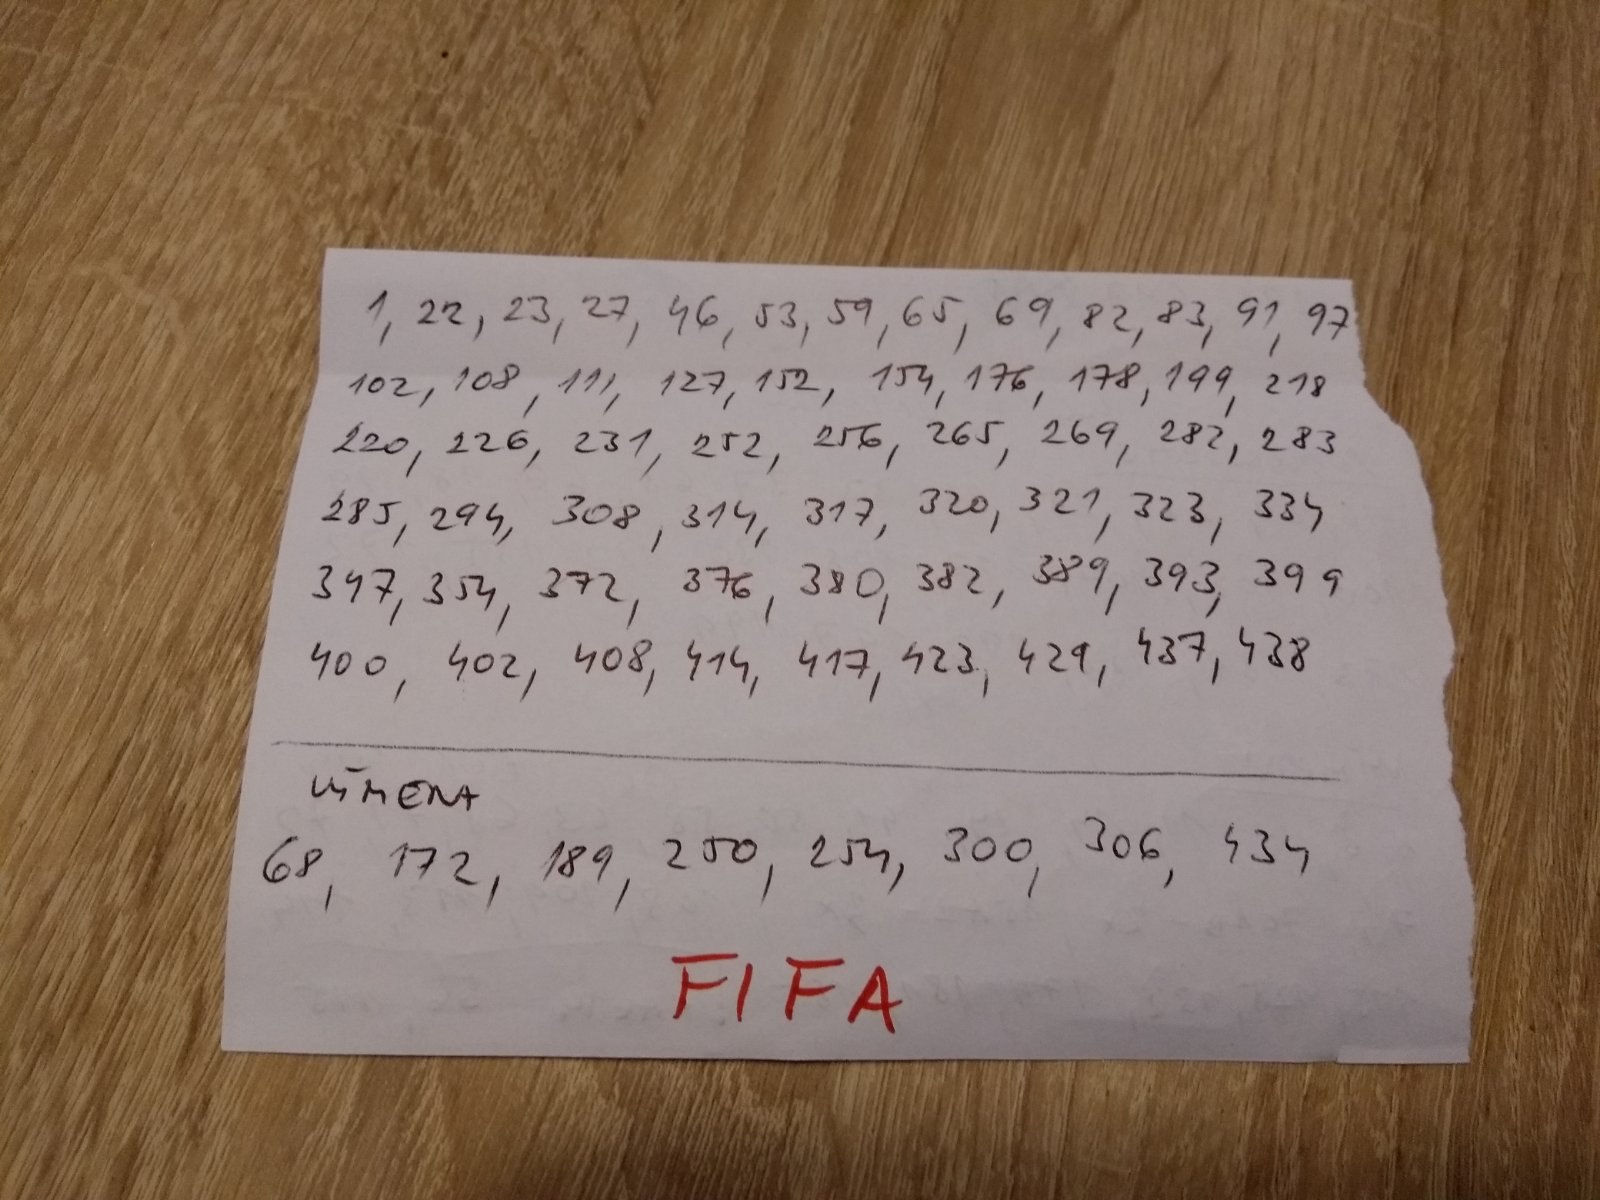 1, 22, 23, 27, 46, 53, 59, 65, 69, 82, 83, 91, 97
102, 108, 111, 127, 152, 154, 176, 178, 199, 218
220, 226, 231, 252, 256, 265, 269, 282, 283
285, 294, 308, 314, 317, 320, 321, 323, 334
347, 354, 372, 376, 380, 382, 389, 393, 399
400, 402, 408, 414, 417, 423, 429, 437, 438
VÝMENA
68, 172, 189, 250, 254, 300, 306, 434
FIFA